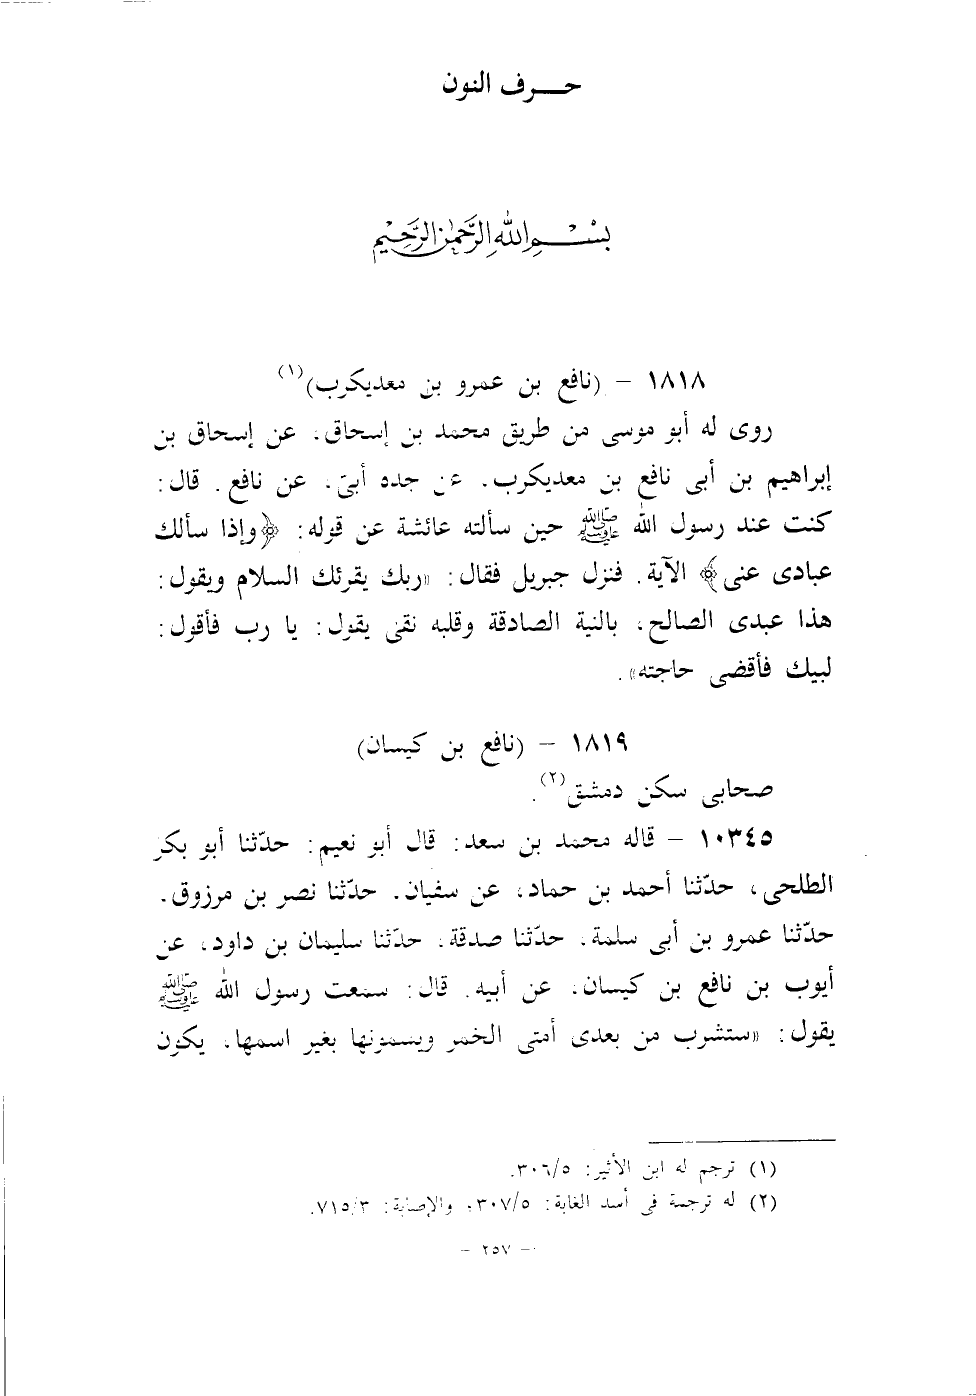 حـــرف النون
بسم الله الرحمن الرحيم
١٨١٨ – (نافع بن عمرو بن معديكرب)(١)
روى له أبو موسى من طريق محمد بن إسحاق، عن إسحاق بن
إبراهيم بن أبى نافع بن معديكرب. عن جده أبىّ، عن نافع. قال:
كنت عند رسول الله ﷺ حين سألته عائشة عن قوله: ﴿وإذا سألك
عبادى عنى﴾ الآية. فنزل جبريل فقال: «ربك يقرئك السلام ويقول:
هذا عبدى الصالح، بالنية الصادقة وقلبه نقى يقول: يا رب فأقول:
لبيك فأقضى حاجته».
١٨١٩ – (نافع بن كيسان)
صحابى سكن دمشق(٢).
١٠٣٤٥ – قاله محمد بن سعد: قال أبو نعيم: حدّثنا أبو بكر
الطلحى، حدّثنا أحمد بن حماد، عن سفيان. حدّثنا نصر بن مرزوق.
حدّثنا عمرو بن أبى سلمة، حدّثنا صدقة، حدّثنا سليمان بن داود، عن
أيوب بن نافع بن كيسان، عن أبيه. قال: سمعت رسول الله ﷺ
يقول: «ستشرب من بعدى أمتى الخمر ويسمونها بغير اسمها، يكون
(١) ترجم له ابن الأثير: ٣٠٦/٥.
(٢) له ترجمة فى أسد الغابة: ٣٠٧/٥، والإصابة: ٧١٥/٣.
– ٢٥٧ –